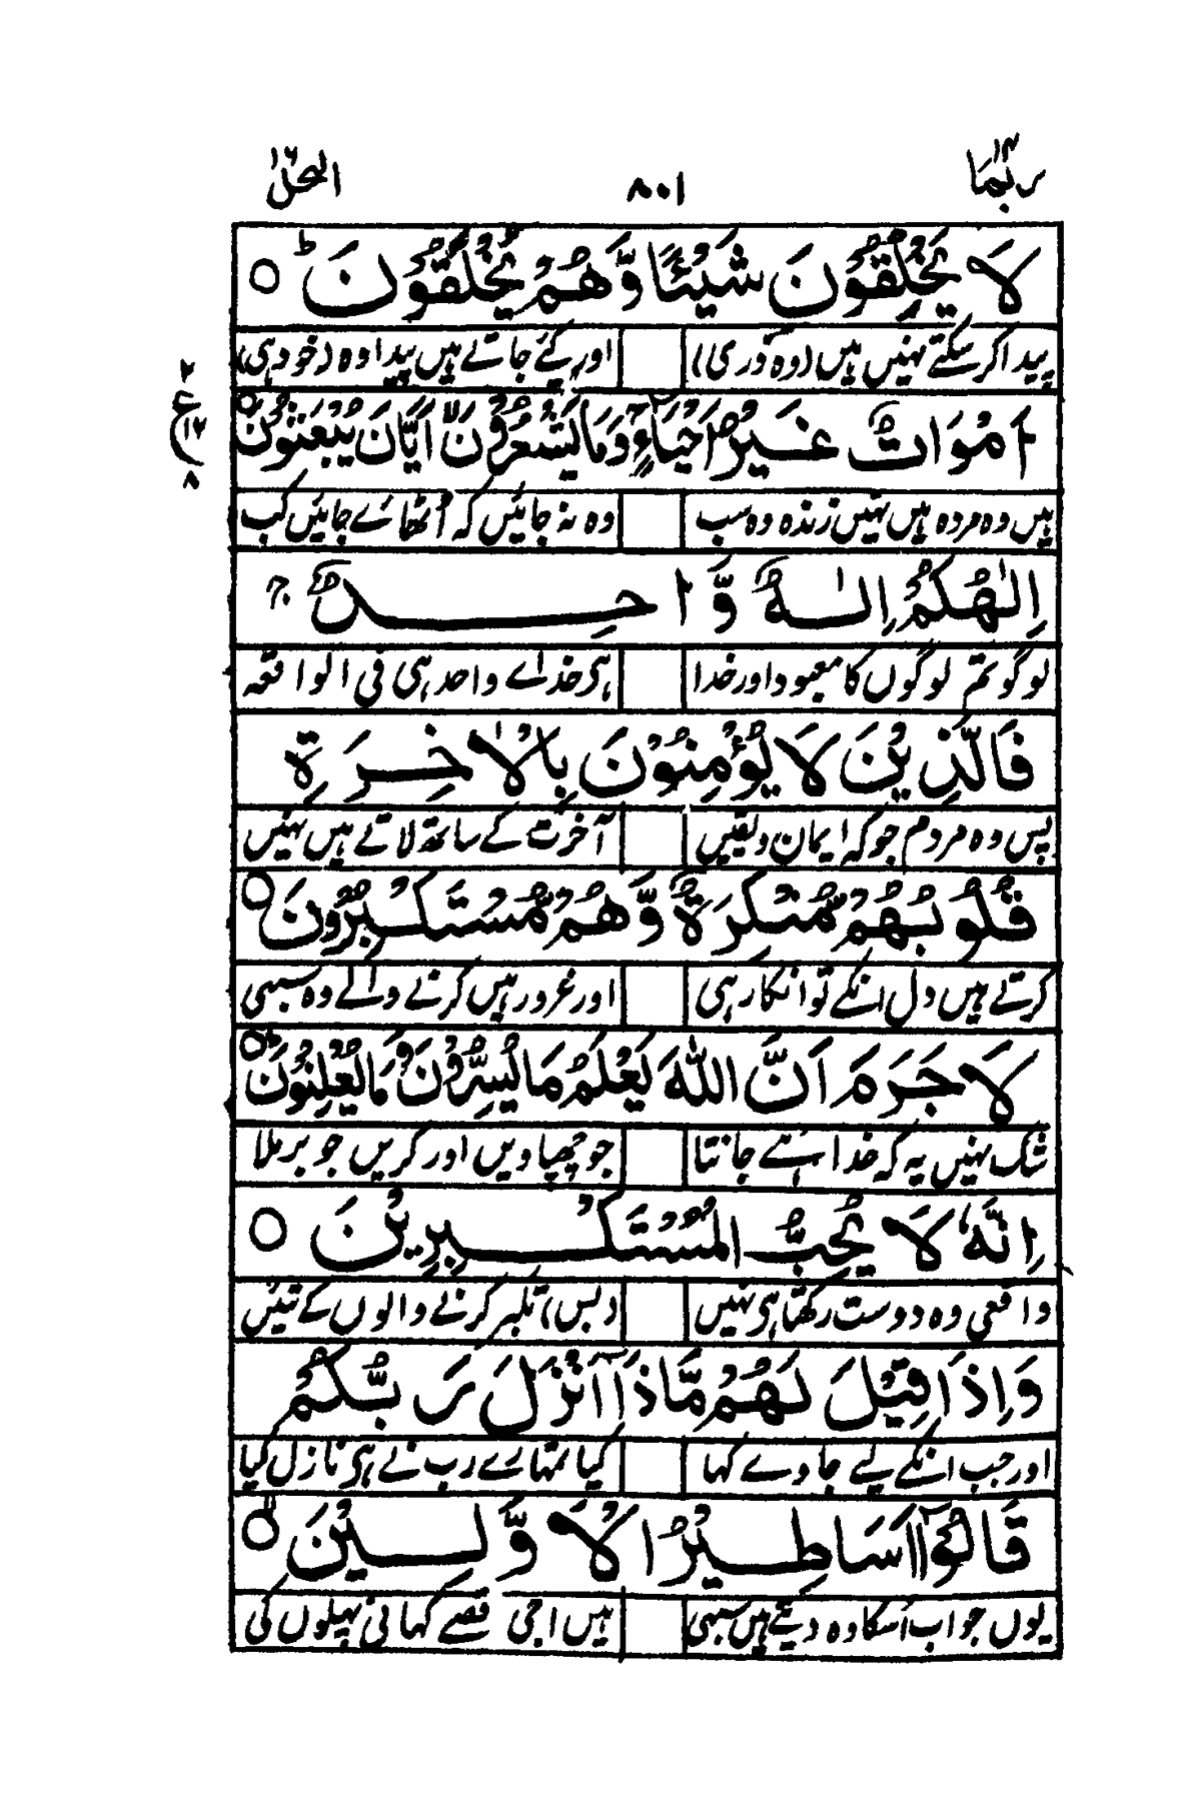 ربما ۱۴ ۸۰۱ النحل ۱۶
لَا يَخْلُقُوْنَ شَيْئًا وَّهُمْ يُخْلَقُوْنَ ؕ ○
پیدا کر سکتے نہیں ہیں (وہ ذری) اور کئے جاتے ہیں پیدا وہ (خود ہی)
اَمْوَاتٌ غَيْرُ اَحْيَآءٍ وَمَا يَشْعُرُوْنَ اَيَّانَ يُبْعَثُوْنَ ○
۲ ع ۱۲ ۸
ہیں وہ مردہ ہیں نہیں زندہ وہ سب وہ نہ جانیں کہ اُٹھائے جائیں کب
اِلٰهُكُمْ اِلٰهٌ وَّاحِدٌ ۚ
لوگو تم لوگوں کا معبود اور خدا ہی خدائے واحد ہی فی الواقعہ
فَالَّذِيْنَ لَا يُؤْمِنُوْنَ بِالْاٰخِرَةِ
پس وہ مردم جو کہ ایمان و یقیں آخرت کے ساتھ لاتے ہیں نہیں
قُلُوْبُهُمْ مُّنْكِرَةٌ وَّهُمْ مُّسْتَكْبِرُوْنَ ○
کرتے ہیں دل انکے تو انکار ہی اور غرور ہیں کرنے والے وہ سبھی
لَا جَرَمَ اَنَّ اللّٰهَ يَعْلَمُ مَا يُسِرُّوْنَ وَمَا يُعْلِنُوْنَ ؕ ○
شک نہیں یہ کہ خدا ہے جانتا جو چھپاویں اور کریں جو برملا
اِنَّهٗ لَا يُحِبُّ الْمُسْتَكْبِرِيْنَ ○
واقعی وہ دوست رکھتا ہی نہیں (بس) تکبر کرنے والوں کے تئیں
وَاِذَا قِيْلَ لَهُمْ مَّاذَآ اَنْزَلَ رَبُّكُمْ
اور جب انکے لیے جاوے کہا کیا تمہارے رب نے ہی نازل کیا
قَالُوْٓا اَسَاطِيْرُ الْاَوَّلِيْنَ ۙ ○
یوں جواب اُسکا وہ دیتے ہیں سبھی ہیں اجی قصے کہانی پہلوں کی